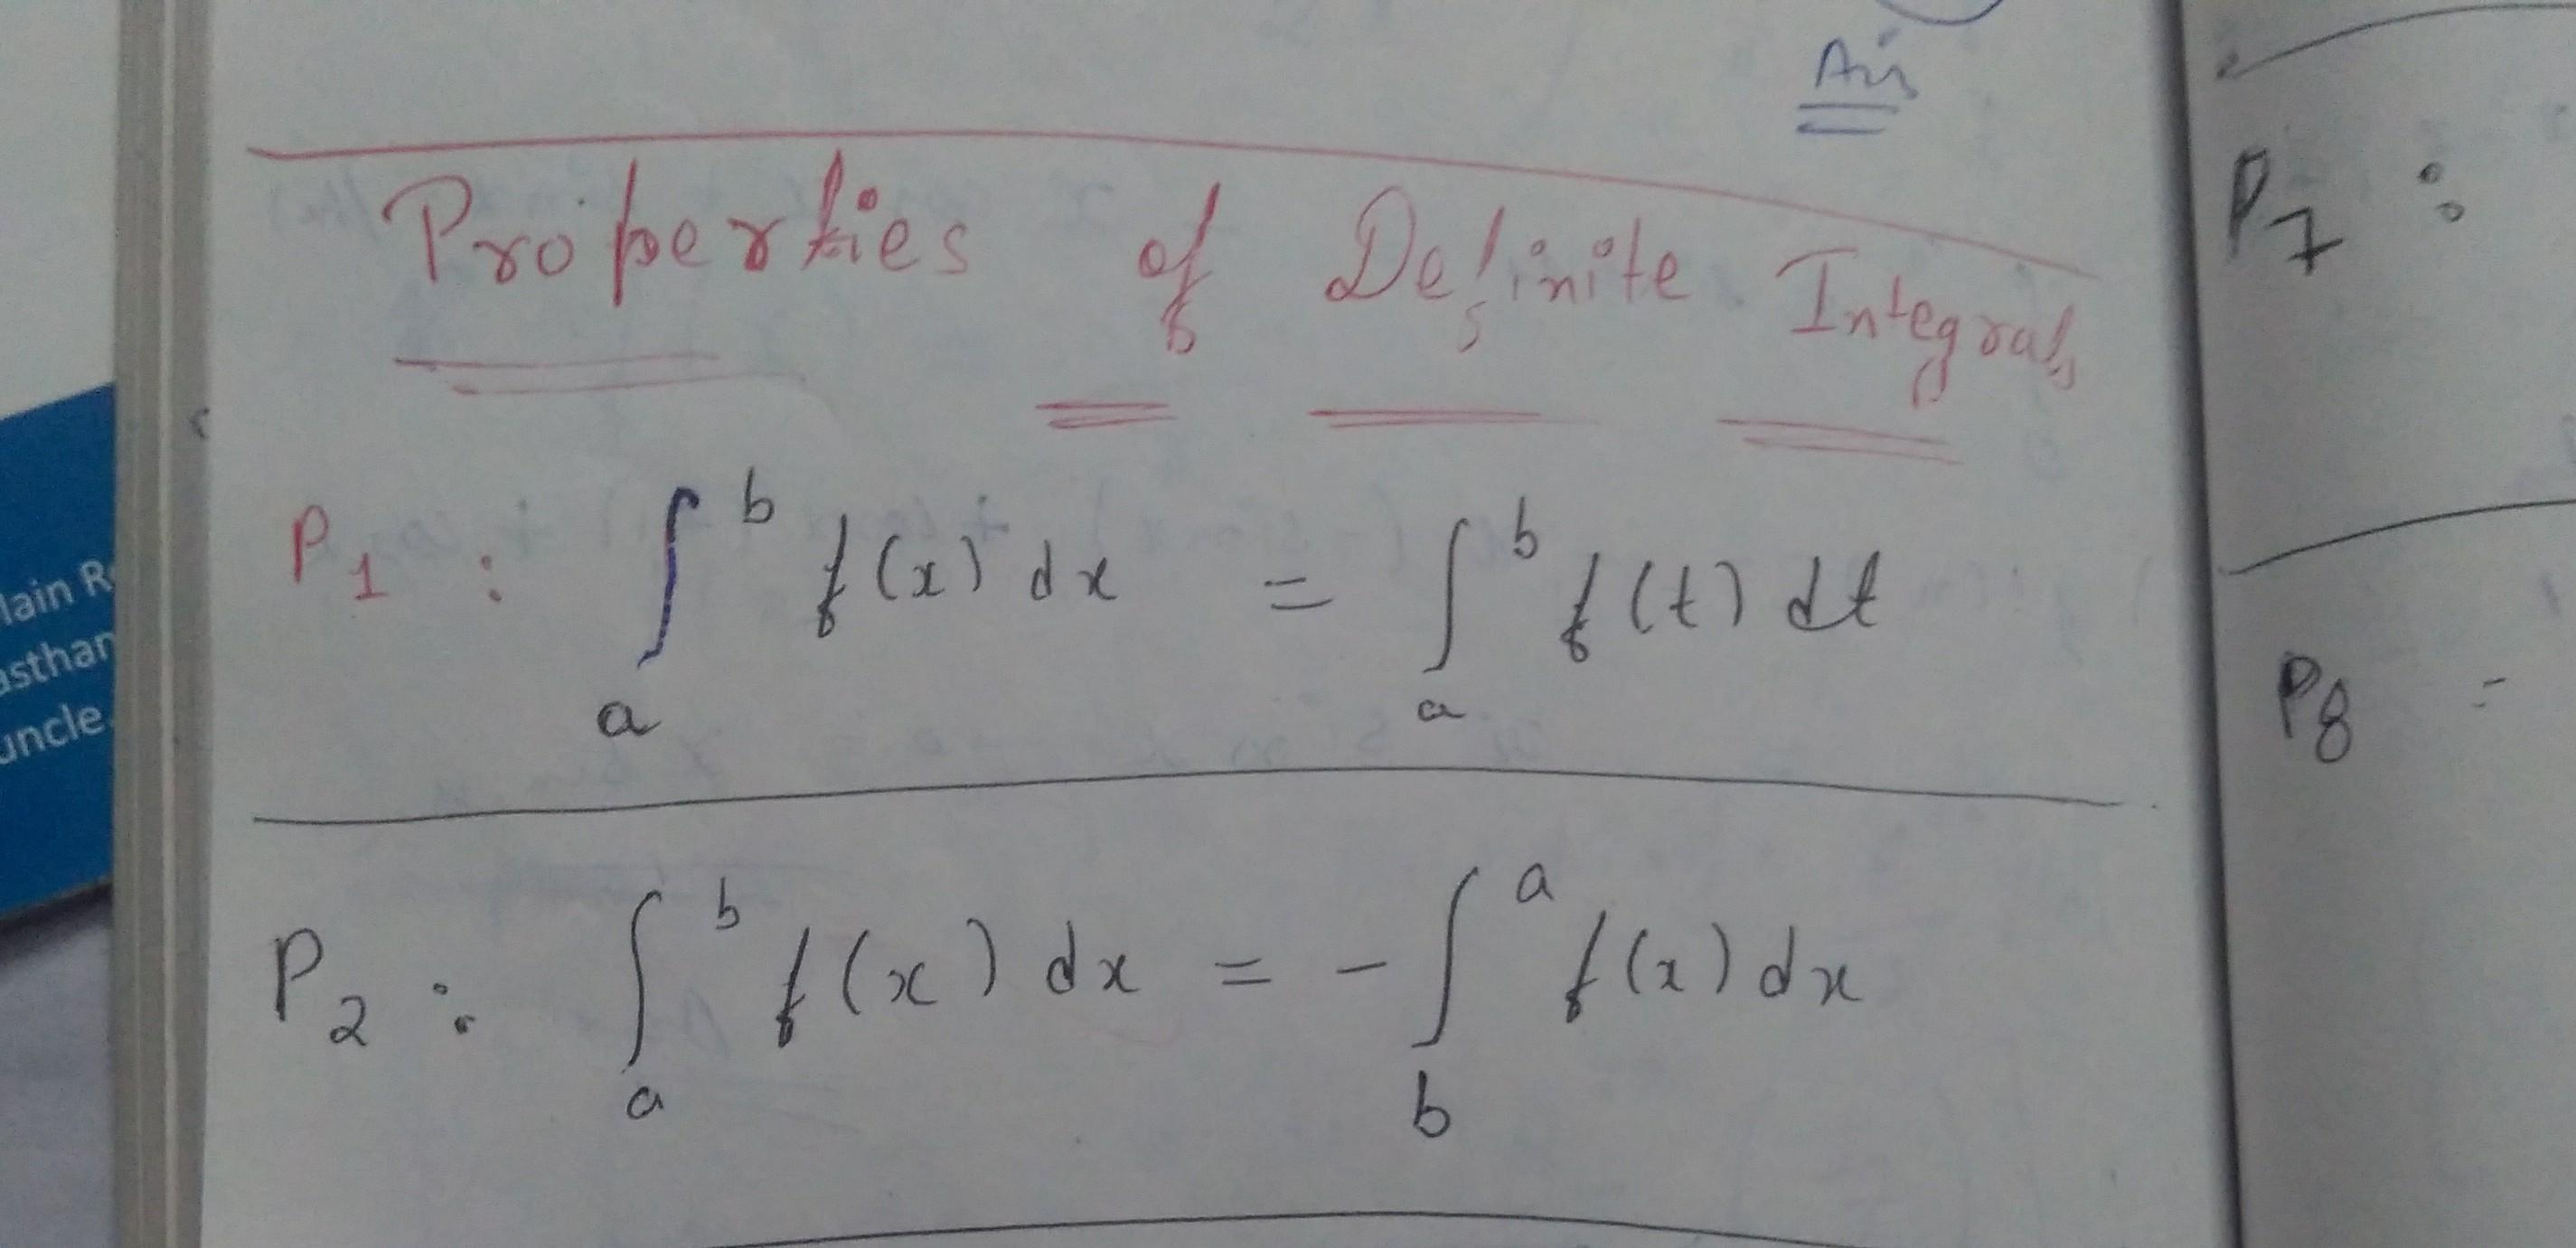 Ans
Properties of Definite Integrals
P₁ : ∫ₐᵇ f(x) dx = ∫ₐᵇ f(t) dt
P₂ : ∫ₐᵇ f(x) dx = - ∫_b^a f(x) dx
P₇ :
P₈
lain R
asthan
uncle.